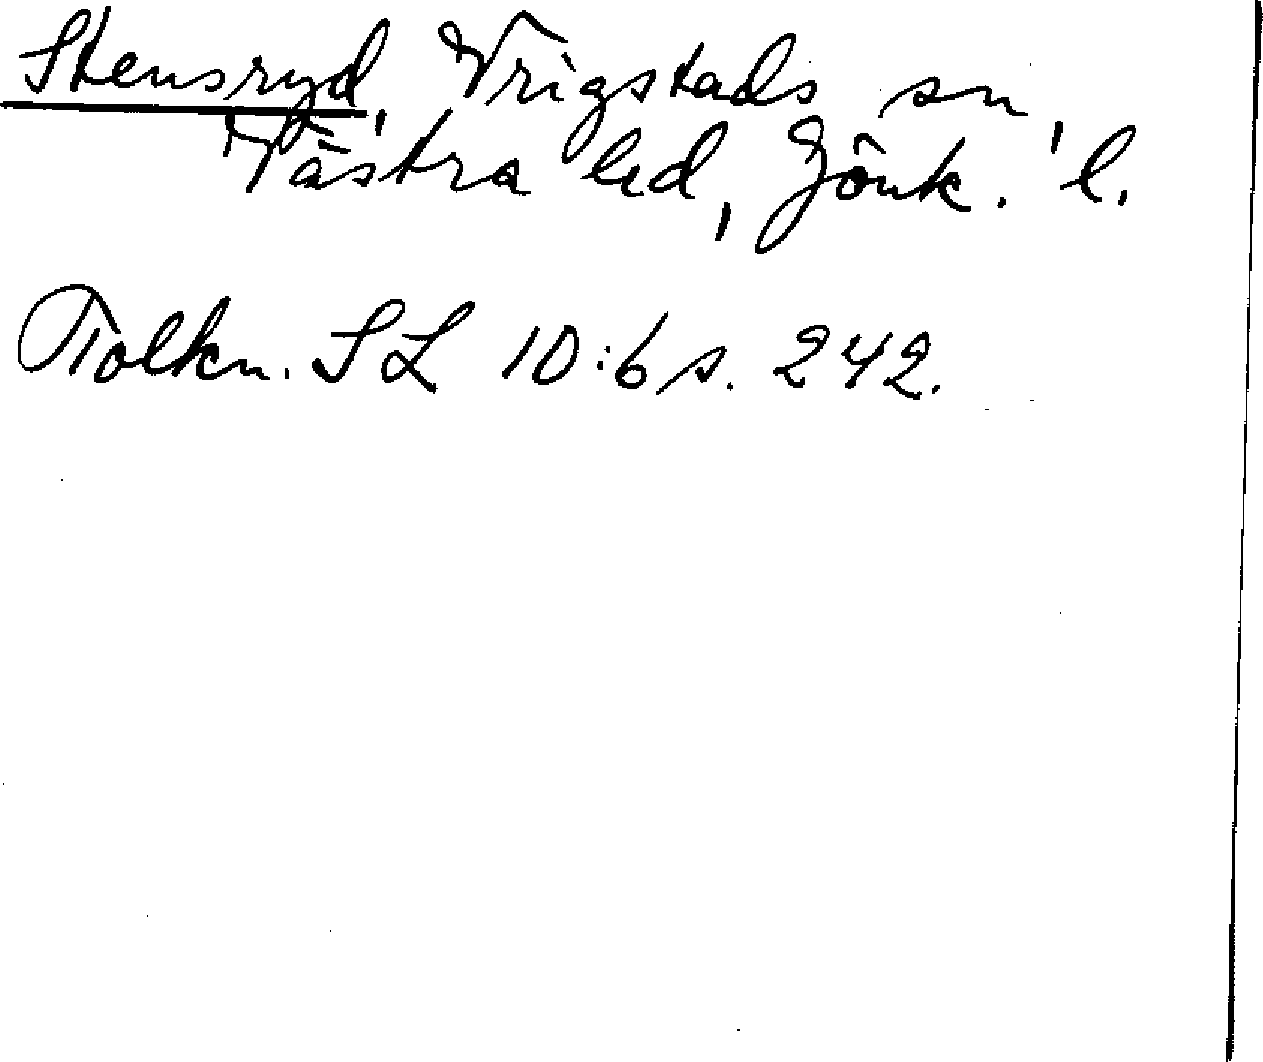 Stensryd, Vrigstads sn,
Västra hd, Jönk. l.
Tolkn. SL 10:6 s. 242.